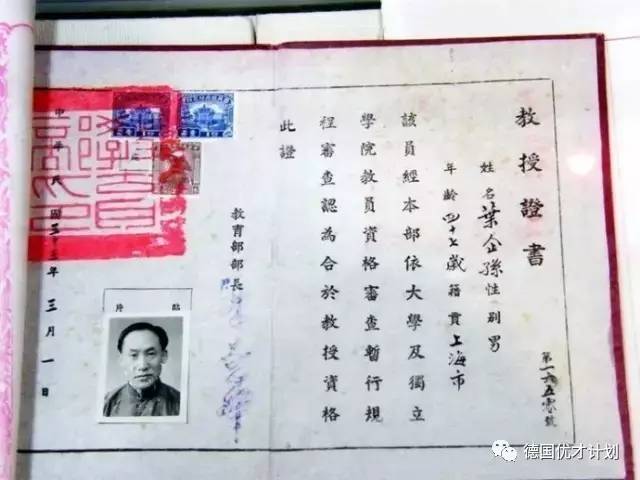 教授證書
姓名葉企孫性別男
年齡四十七歲籍貫上海市
第一六五零號
該員經本部依大學及獨立
學院教員資格審查暫行規
程審查認為合於教授資格
此證
教育部部長
中華民國三十三年三月一日
德国优才计划